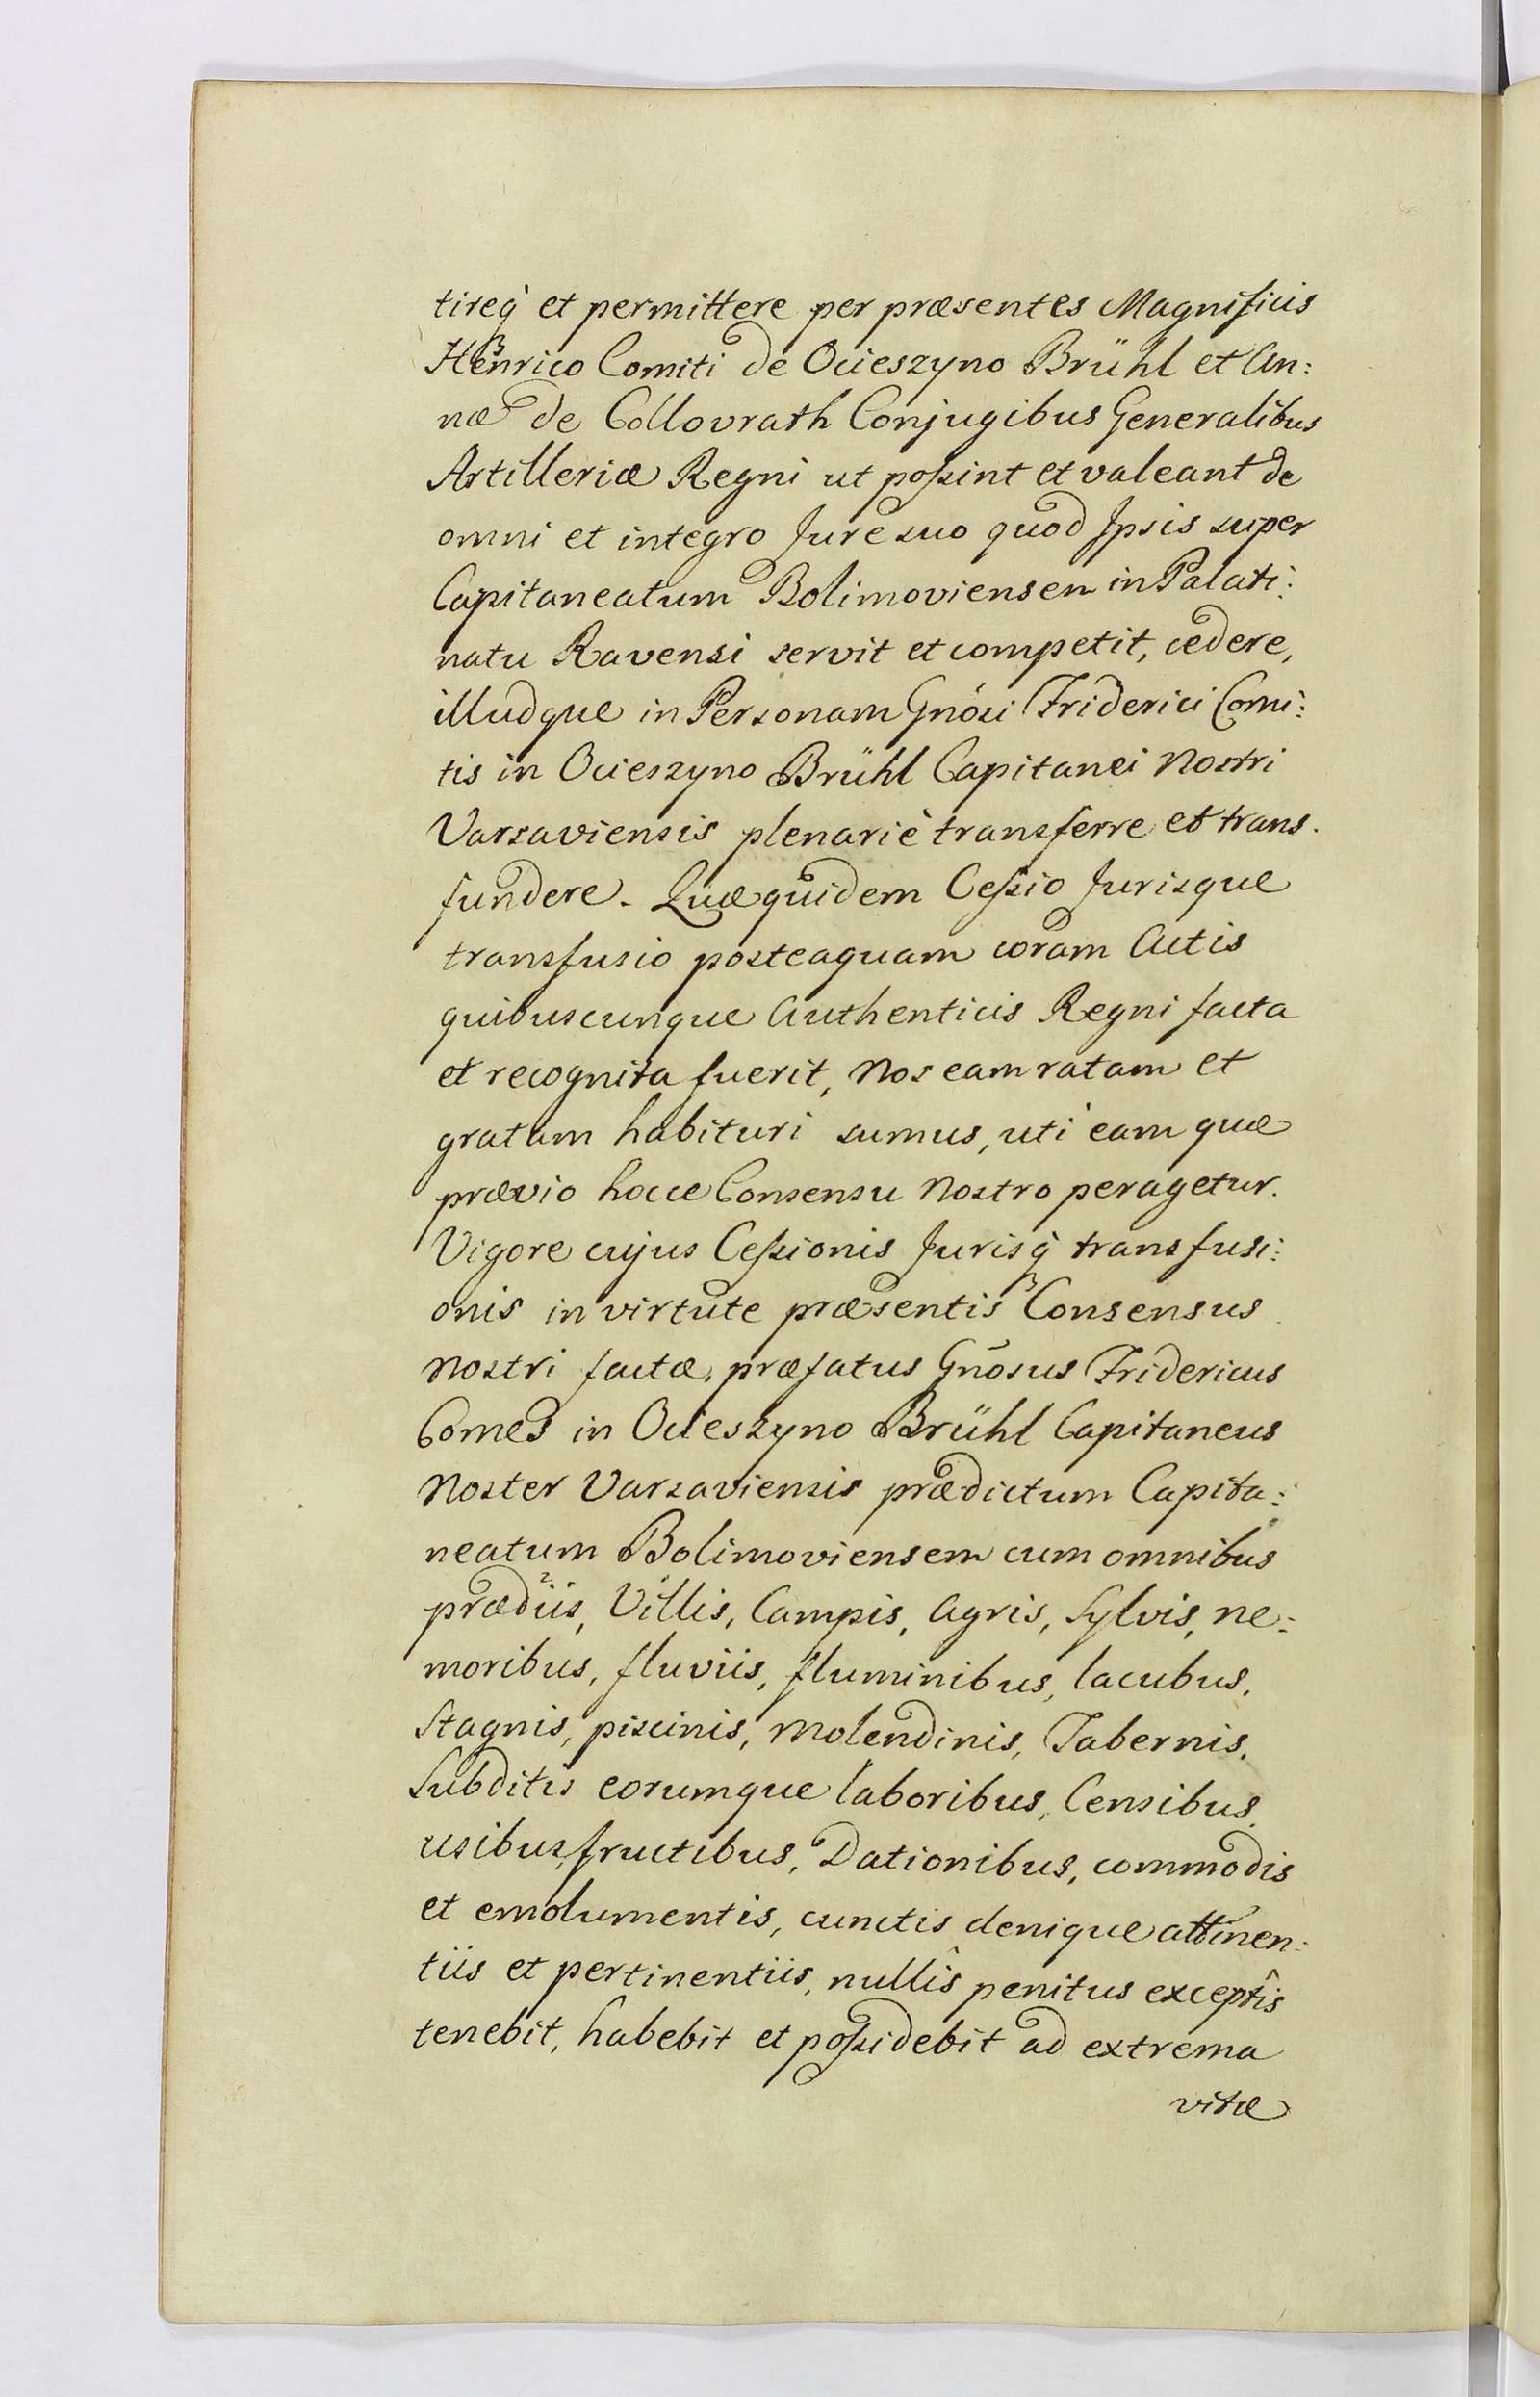 tireq̀ et permittere per præsentes Magnificis
Henrico Comiti de Ocieszyno Brühl et An:
næ de Collovrath Conjugibus Generalibus
Artilleriæ Regni ut possint et valeant de
omni et integro Jure suo quod Ipsis super
Capitaneatum Bolimoviensem in Palati:
natu Ravensi servit et competit, cedere,
illudque in Personam Gnősi Friderici Comi:
tis in Ocieszyno Brühl Capitanei Nostri
Varsaviensis plenariè transferre et trans.
fundere. Quæ quidem Cessio Jurisque
transfusio posteaquam coram Actis
quibuscunque Authenticis Regni facta
et recognita fuerit, Nos eam ratam et
gratam habituri sumus, uti eam quæ
prævio hocce Consensu Nostro peragetur.
Vigore cujus Cessionis Jurisq̀ transfusi:
onis in virtute præsentis Consensus
Nostri factæ, præfatus Gnōsus Fridericus
Comes in Ocieszyno Brühl Capitaneus
Noster Varsaviensis prædictum Capita:
neatum Bolimoviensem cum omnibus
prædiis, Villis, Campis, Agris, Sylvis, ne:
moribus, fluviis, fluminibus, lacubus,
Stagnis, piscinis, Molendinis, Tabernis,
Subditis eorumque laboribus, Censibus,
usibus, fructibus, Dationibus, commodis
et emolumentis, cunctis denique attinen:
tiis et pertinentiis, nullîs penitus exceptîs
tenebit, habebit et possidebit ad extrema
vitæ